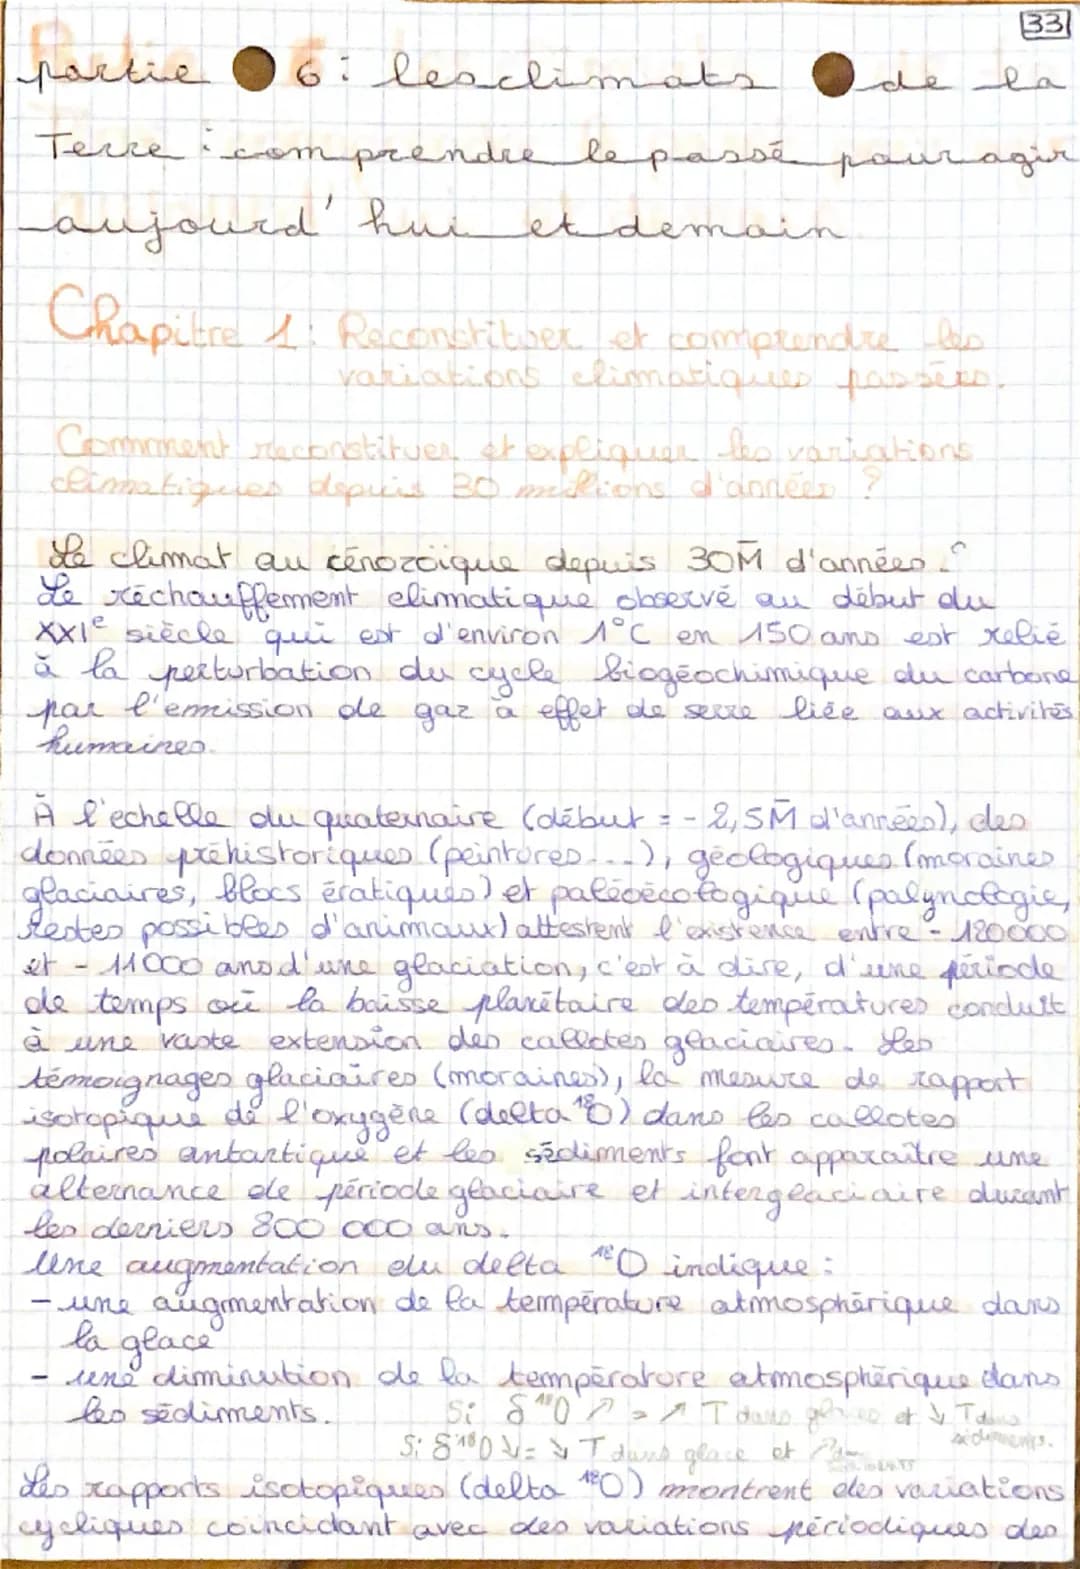 33
partie 6 : les climats de la
Terre : comprendre le passé pour agir
aujourd'hui et demain
Chapitre 1 : Reconstituer et comprendre les
variations climatiques passées.
Comment reconstituer et expliquer les variations
climatiques depuis 30 millions d'années ?
Le climat au cénozoïque depuis 30M d'années.
Le réchauffement climatique observé au début du
XXIe siècle qui est d'environ 1°C en 150 ans est relié
à la perturbation du cycle biogéochimique du carbone
par l'émission de gaz à effet de serre liée aux activités
humaines.
À l'echelle du quaternaire (début = - 2,5M d'années), des
données préhistoriques (peintures...), géologiques (moraines
glaciaires, blocs ératiques) et paléoécologique (palynologie,
restes possibles d'animaux) attestent l'existence entre - 120000
et - 11000 ans d'une glaciation, c'est à dire, d'une période
de temps où la baisse planétaire des températures conduit
à une vaste extension des callotes glaciaires. Les
témoignages glaciaires (moraines), la mesure de rapport
isotopique de l'oxygène (delta 18O) dans les callotes
polaires antartique et les sédiments font apparaître une
alternance de période glaciaire et interglaciaire durant
les derniers 800 000 ans.
Une augmentation du delta 18O indique :
- une augmentation de la température atmosphérique dans
la glace
- une diminution de la température atmosphérique dans
les sédiments.
Si δ18O ↗ = ↗ T dans glaces et ↘ T dans sédiments.
Si δ18O ↘ = ↘ T dans glace et ↗
Les rapports isotopiques (delta 18O) montrent des variations
cycliques coincidant avec des variations périodiques des